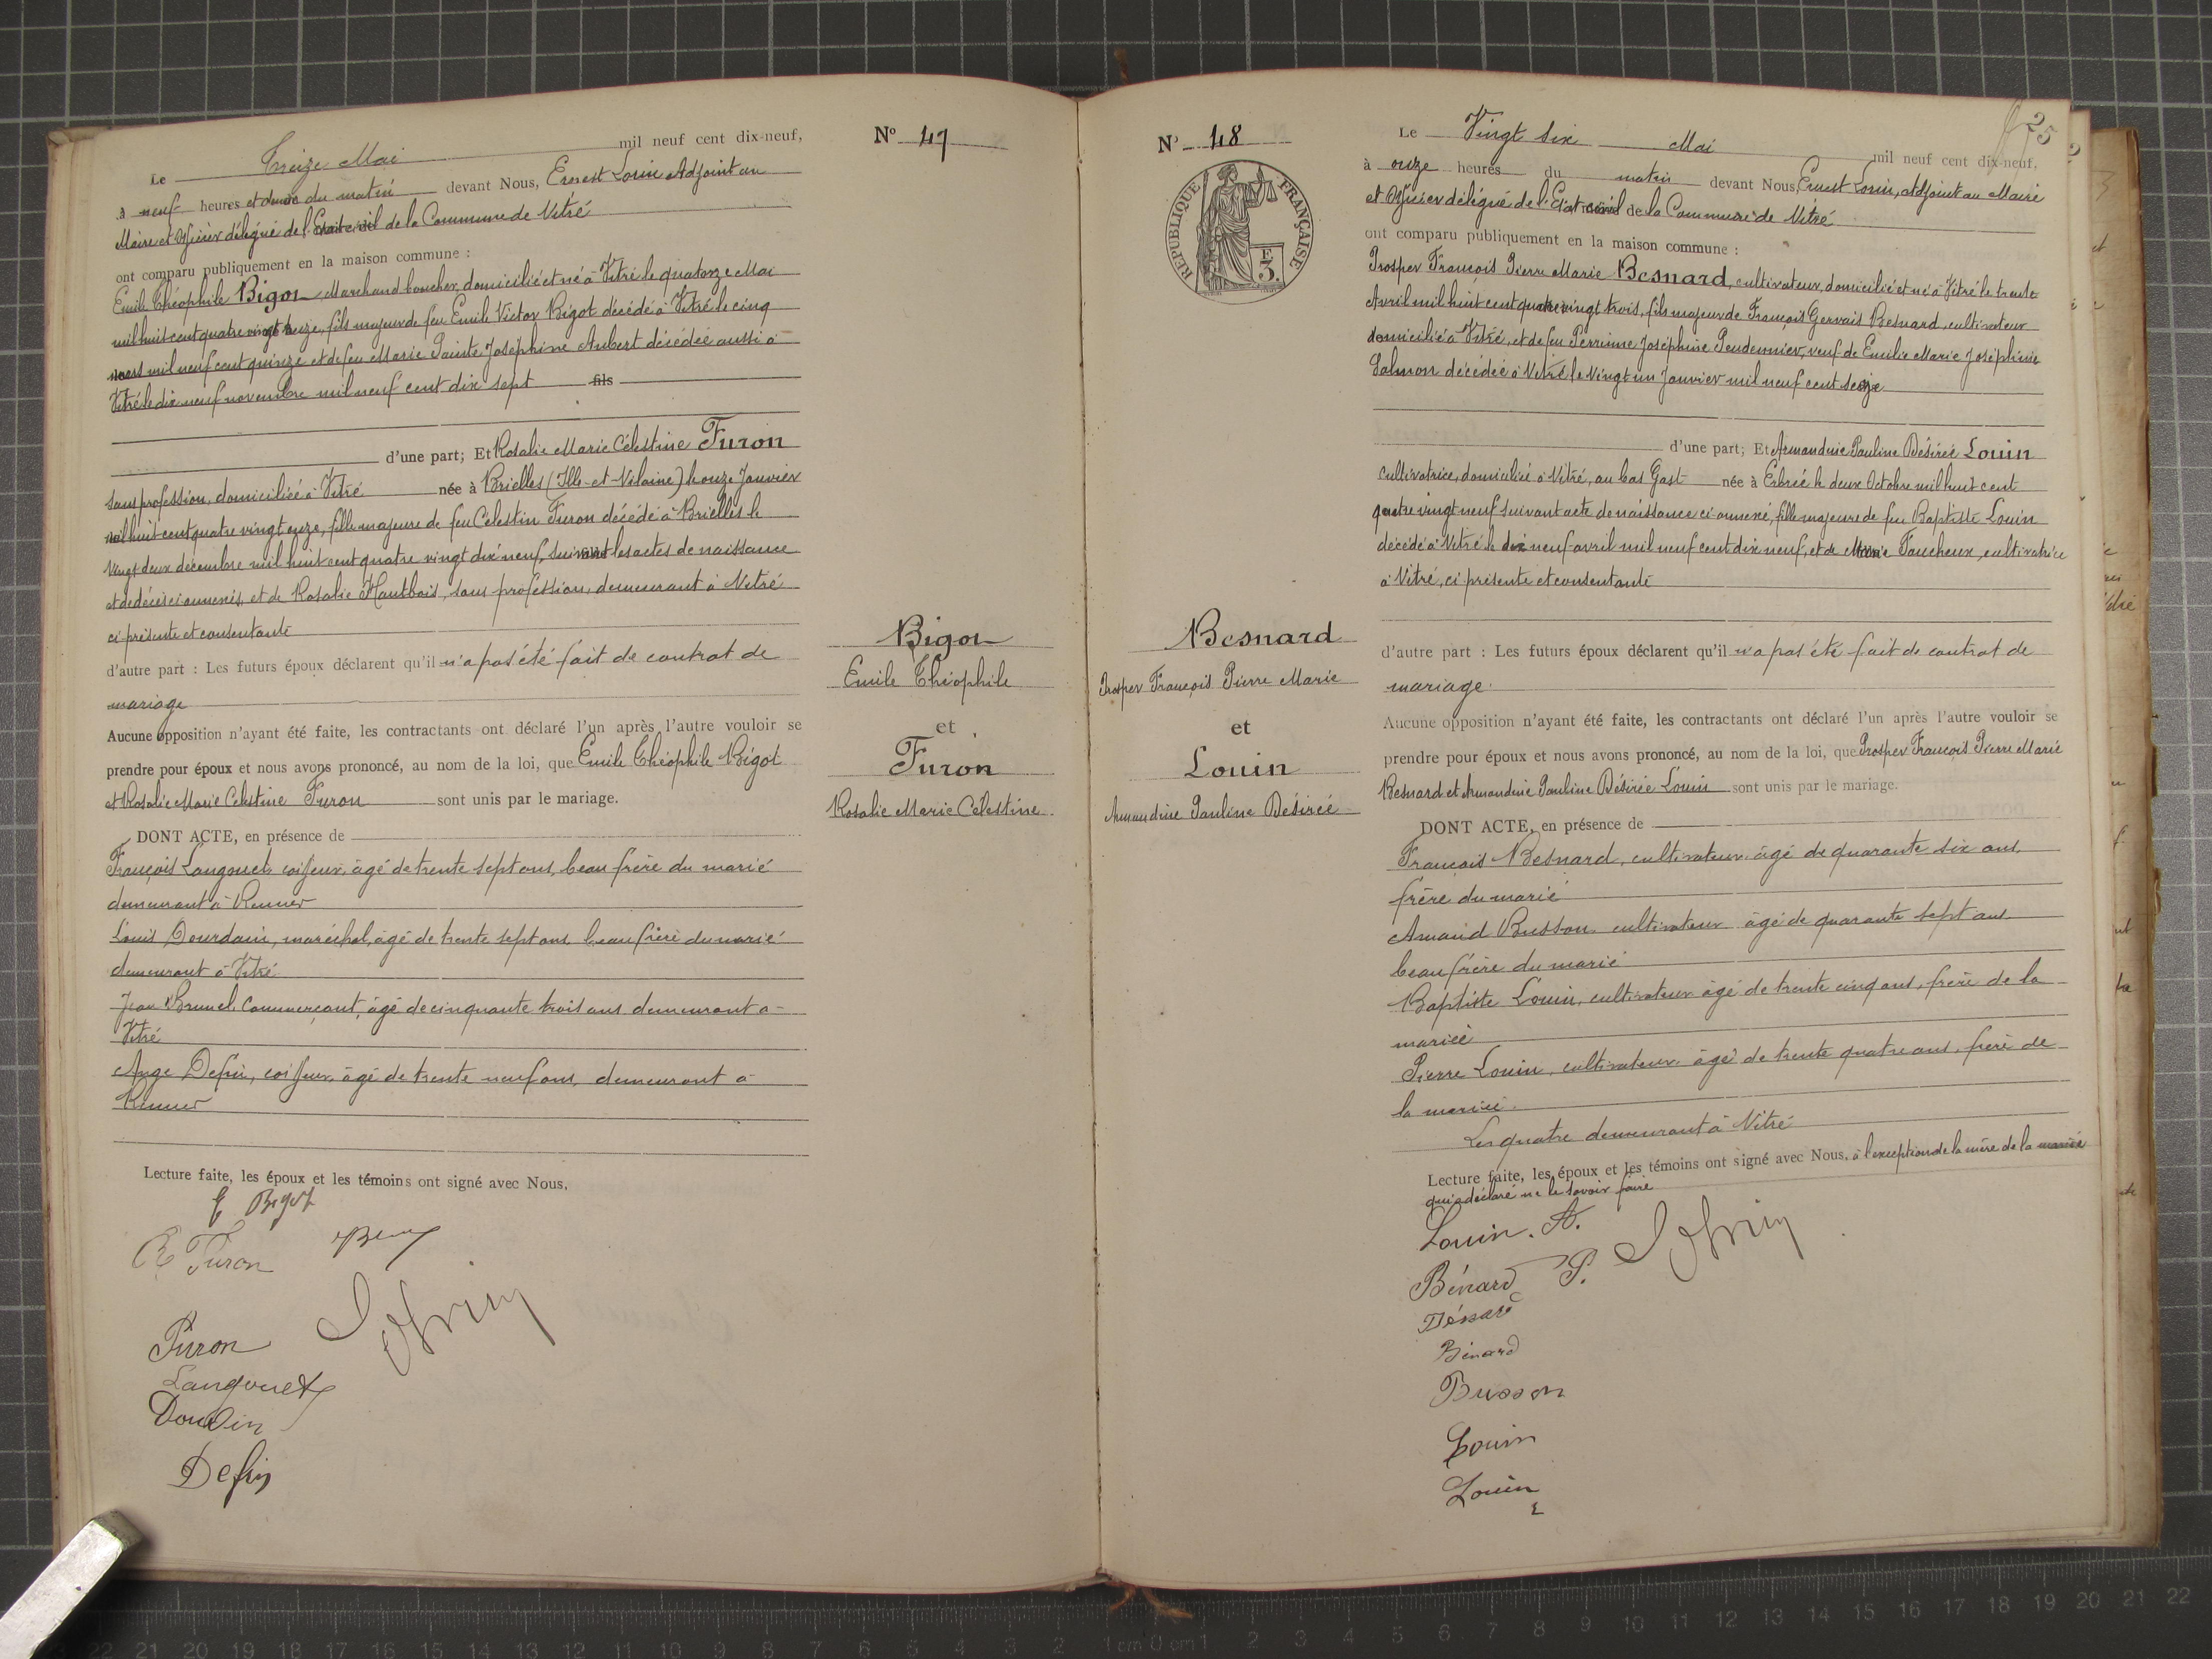 Le Treize Mai mil neuf cent dix-neuf,
à neuf heures et demie du matin devant Nous, Ernest Lorin Adjoint au
Maire et Officier délégué de l'Etat civil de la Commune de Vitré
ont comparu publiquement en la maison commune :
Emile Théophile Bigot Marchand boucher, domicilié et né à Vitré le quatorze Mai
mil huit cent quatre vingt treize, fils majeur de feu Emile Victor Bigot décédé à Vitré le cinq
mil neuf cent quinze et de feu Marie Sainte Joséphine Aubert décédée aussi à
Vitré le dix neuf novembre mil neuf cent dix sept fils
d'une part; Et Rosalie Marie Célestine Furon
sans profession, domiciliée à Vitré née à Brielles (Ille-et-Vilaine) le onze Janvier
mil huit cent quatre vingt onze, fille majeure de feu Célestin Furon décédé à Brielles le
vingt deux décembre mil huit cent quatre vingt dix neuf, suivant les actes de naissance
et de décès ci annexés, et de Rosalie Hautbois, sans profession, demeurant à Vitré
ci présente et consentante
d'autre part : Les futurs époux déclarent qu'il n'a pas été fait de contrat de
mariage
Aucune opposition n'ayant été faite, les contractants ont déclaré l'un après l'autre vouloir se
prendre pour époux et nous avons prononcé, au nom de la loi, que Emile Théophile Bigot
et Rosalie Marie Célestine Furon sont unis par le mariage.
DONT ACTE, en présence de
François Langouet coiffeur, âgé de trente sept ans, beau frère du marié
demeurant à Rennes
Louis Dourdain, maréchal, âgé de trente sept ans beau frère du marié
demeurant à Vitré
Jean Brunel, Commerçant, âgé de cinquante trois ans demeurant à
Vitré
Ange Defin, coiffeur, âgé de trente neuf ans, demeurant à
Rennes
Lecture faite, les époux et les témoins ont signé avec Nous,
E Bigot
R Furon
Furon
Langouet
Defin
N° 47
Bigot
Emile Théophile
et
Furon
Rosalie Marie Célestine
N° 48
REPUBLIQUE FRANÇAISE
E
3.
Besnard
Prosper François Pierre Marie
et
Louin
Armandine Pauline Désirée
25
Le Vingt six Mai mil neuf cent dix-neuf,
à onze heures du matin devant Nous, Ernest Lorin, Adjoint au Maire
et Officier délégué de l'Etat civil de la Commune de Vitré
ont comparu publiquement en la maison commune :
Prosper François Pierre Marie Besnard, cultivateur, domicilié et né à Vitré le trente
Avril mil huit cent quatre vingt trois, fils majeur de François Gervais Besnard, cultivateur
domicilié à Vitré, et de feu Perrine Joséphine Gendronnier, veuf de Emilie Marie Joséphine
Salmon décédée à Vitré le Vingt un Janvier mil neuf cent seize
d'une part; Et Armandine Pauline Désirée Louin
cultivatrice, domiciliée à Vitré, au bas Gast née à Erbrée le deux Octobre mil huit cent
quatre vingt neuf suivant acte de naissance ci annexé, fille majeure de feu Baptiste Louin
décédé à Vitré le dix neuf avril mil neuf cent dix neuf, et de Marie Faucheux, cultivatrice
à Vitré, ci présente et consentante
d'autre part : Les futurs époux déclarent qu'il n'a pas été fait de contrat de
mariage
Aucune opposition n'ayant été faite, les contractants ont déclaré l'un après l'autre vouloir se
prendre pour époux et nous avons prononcé, au nom de la loi, que Prosper François Pierre Marie
Besnard et Armandine Pauline Désirée Louin sont unis par le mariage.
DONT ACTE, en présence de
François Besnard, cultivateur, âgé de quarante six ans,
frère du marié
Amand Busson, cultivateur âgé de quarante sept ans
beau frère du marié
Baptiste Louin, cultivateur âgé de trente cinq ans, frère de la
mariée
Pierre Louin, cultivateur, âgé de trente quatre ans, frère de
la mariée.
Les quatre demeurant à Vitré
Lecture faite, les époux et les témoins ont signé avec Nous, à l'exception de la mère de la mariée
qui a déclaré ne le savoir faire
Louin. A.
Bénard P.
Bénard
Bénard
Busson
Louin
Louin